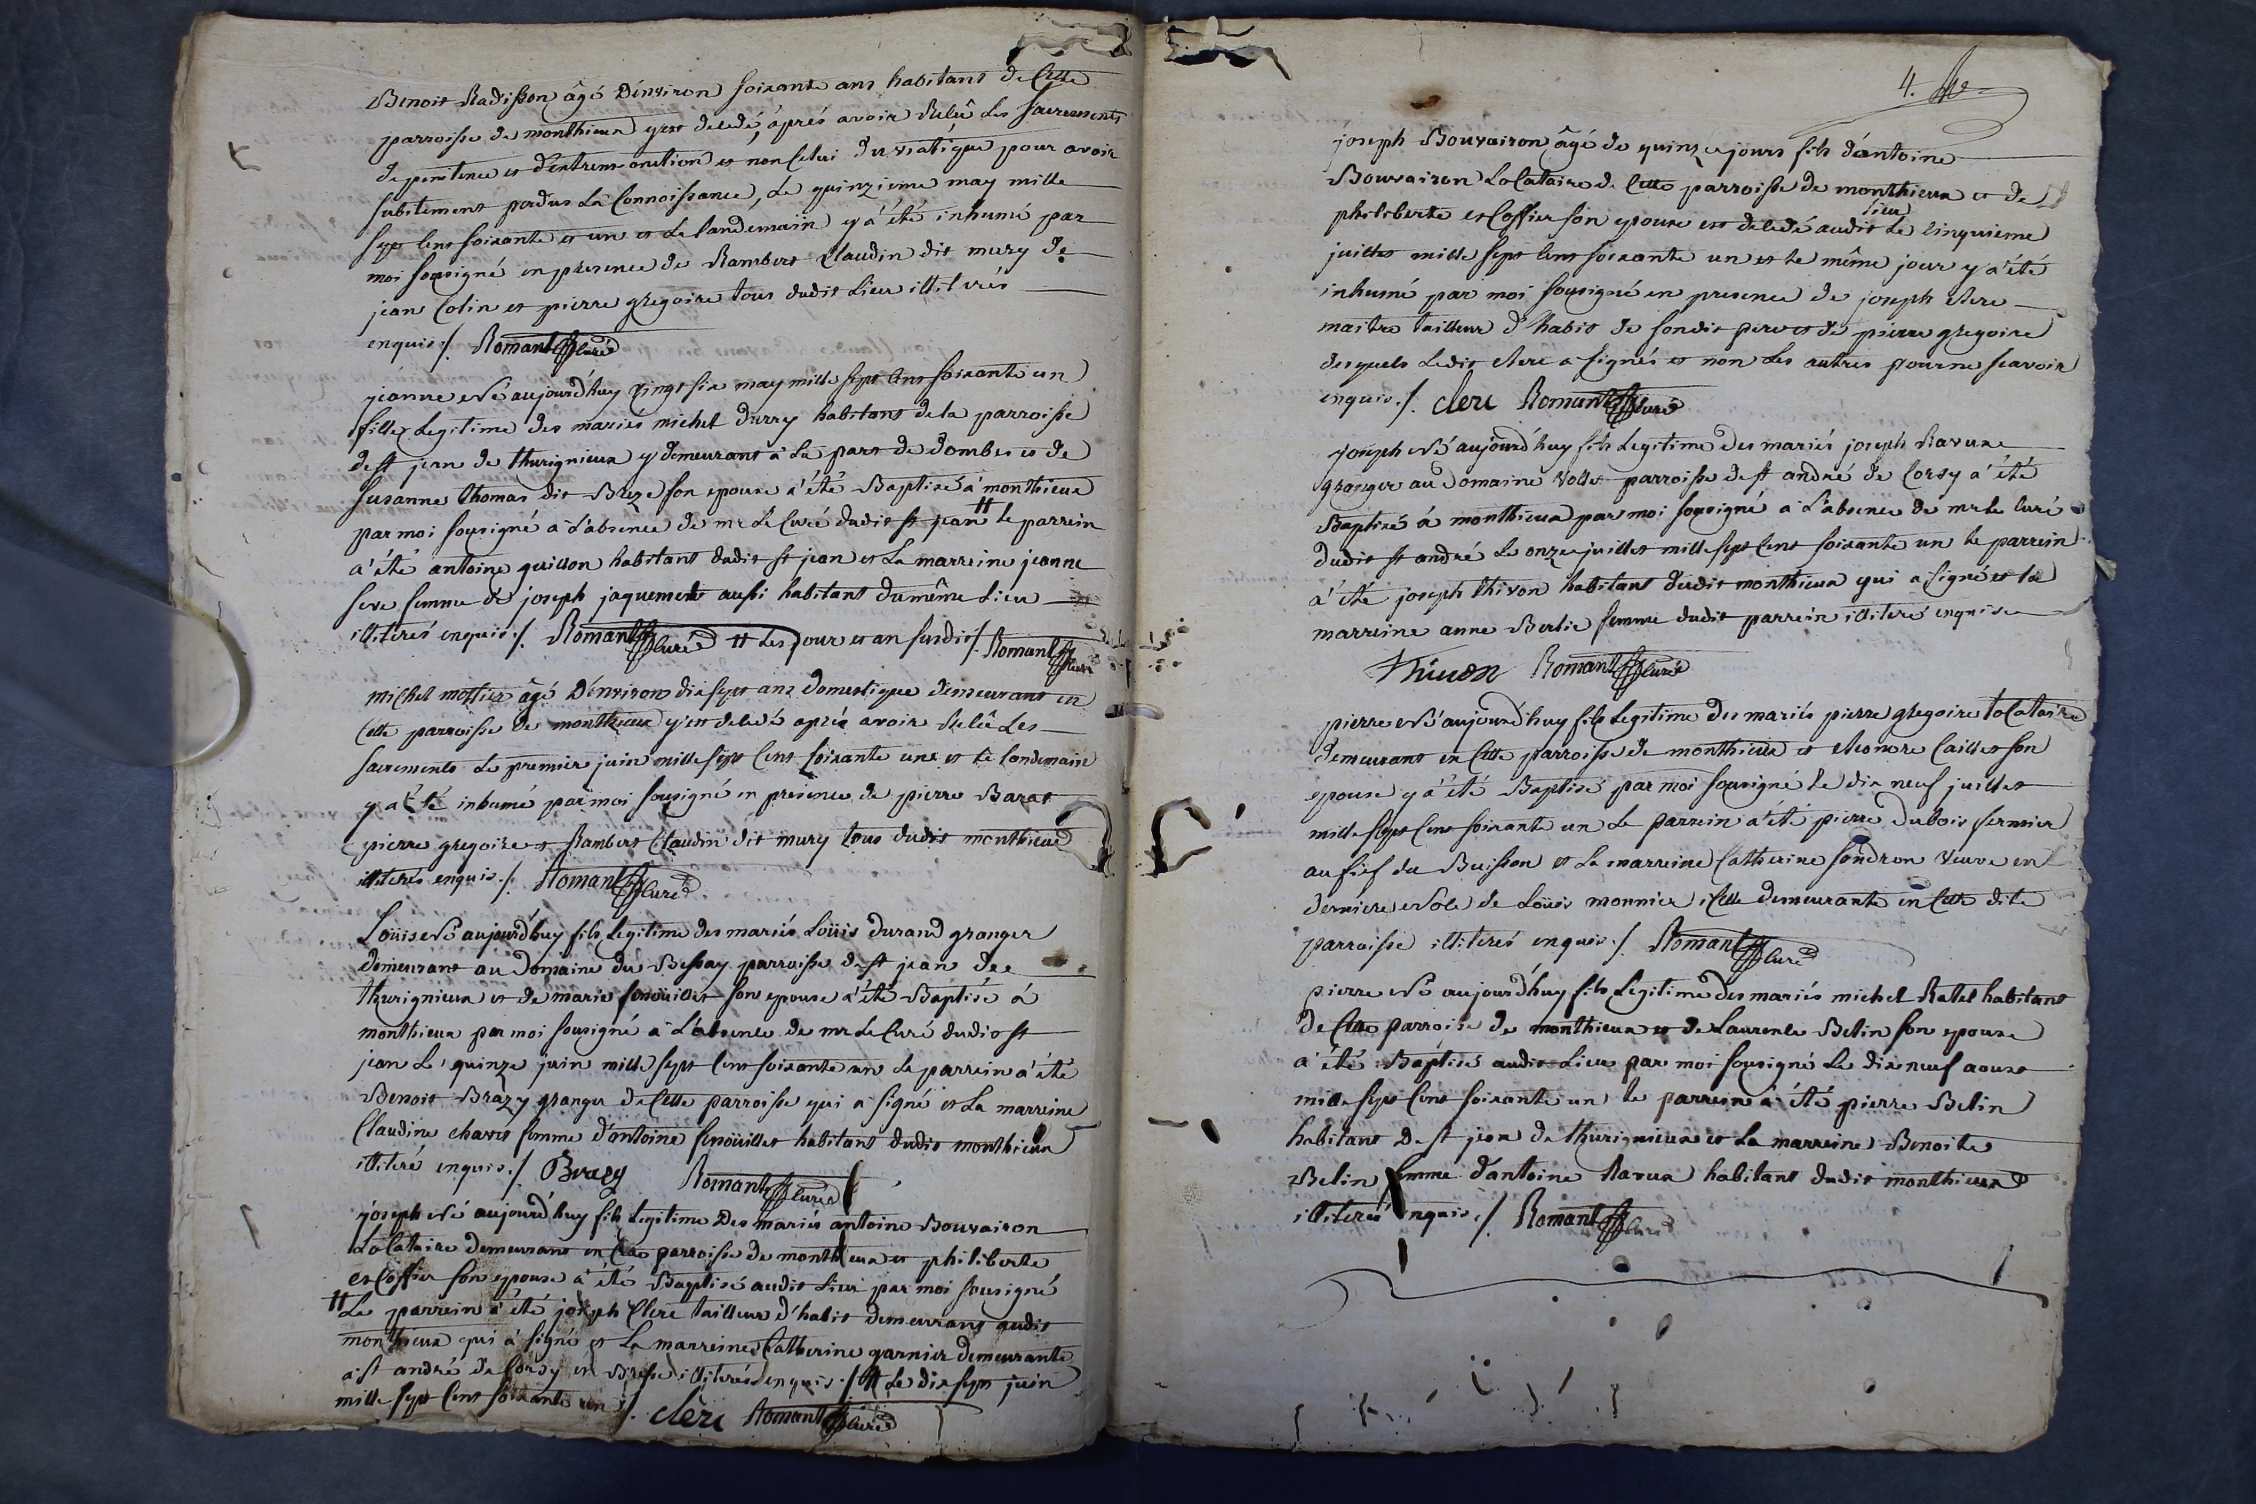 Benoit Radisson âgé D'environ soixante ans habitant de Cette
parroisse de monthieux y est decedé, aprés avoir Reçû Les sacrements
de penitence et d'extreme onction et non Celui du viatique pour avoir
subitement perdus La Connoissance, Le quinzieme may mille
sept Cent soixante et un et Le landemain y a été inhumé par
moi sousigné en presence de Rambert Claudin dit mury de
jean Colin et pierre gregoire tous dudit Lieu illiterés
enquis ./. Romant Curé
jeanne Né aujourd'huy vingt six may mille sept Cent soixante un
fille Legitime des mariés michel Durry habitant de la parroisse
de st jean de thurignieux y demeurant à La part de Dombes et de
susanne thomas dit Breze son epouse a été Baptisé a monthieux
par moi sousigné à L'absence de mr Le Curé dudit st jean # le parrein
a été antoine guillon habitant dudit st jean et La marreine jeanne
seve femme de joseph jaquemet aussi habitant du même Lieu
illiterés enquis ./. Romant Curé # Les jour et an susdit ./. Romant Curé
michel mottier âgé D'environ dix sept ans domestique demeurant en
Cette parroisse de monthieux y est decedé aprés avoir Reçû Les
sacrements Le premier juin mille sept Cent soixante une et le landemain
y a été inhumé par moi sousigné en presence de pierre Barat
pierre gregoire et Rambert Claudin dit mury tous dudit monthieux
illiterés enquis ./. Romant Curé
Loüis Né aujourd'huy fils Legitime des mariés Loüis Durand granger
demeurant au Domaine du Bessay parroisse de st jean de
thurignieux et de marie fenoüillet son epouse a été Baptisé á
monthieux par moi sousigné a L'absence de mr Le Curé dudit st
jean Le quinze juin mille sept Cent soixante un Le parrein a été
Benoit Brazy granger de Cette parroisse qui a signé et La marreine
Claudine Chavet femme d'antoine fenoüillet habitant dudit monthieux
illiteré enquis ./. Brazy Romant Curé
joseph Né aujourd'huy fils Legitime Des mariés antoine Bouvairon
LoCataire demeurant en Cette parroisse de monthieux et philiberte
esCoffier son epouse a été Baptisé audit Lieu par moi sousigné
# Le parrein a été joseph Clere tailleur d'habit demeurant audit
monthieux qui a signé et La marreine Catherine garnier demeurante
a st andré de Corsy en Bresse illiterés enquis ./. # Le dix sept juin
mille sept Cent soixante un ./. clere Romant Curé
4.
joseph Bouvairon âgé de quinze jours fils d'antoine
Bouvairon LoCataire de Cette parroisse de monthieux et de
philiberte esCoffier son epouse est decedé audit lieu Le Cinquieme
juillet mille sept Cent soixante un et le même jour y a été
inhumé par moi sousigné en presence de joseph Clere
maitre tailleur d'habit de sondit pere et de pierre gregoire
desquels Ledit Clere a signés et non Les autres pour ne sçavoir
enquis ./. clere Romant Curé
joseph Né aujourd'huy fils Legitime Des mariés joseph Ravuze
granger au Domaine Volle parroisse de st andré de Corsy a été
Baptisé á monthieux par moi sousigné a L'absence de mr le Curé
dudit st andré Le onze juillet mille sept Cent soixante un le parrein
a été joseph thivon habitant dudit monthieux qui a signé et la
marreine anne Berlie femme dudit parrein illiteré enquise
Thivon Romant Curé
pierre Né aujourd'huy fils Legitime Des mariés pierre gregoire loCataire
demeurant en Cette parroisse de monthieux et eleonore Caillet son
epouse y a été Baptisé par moi sousigné le dix neuf juillet
mille sept Cent soixante un Le parrein a été pierre Dubois fermier
au fief du Buisson et La marreine Catherine sondron veuve en
derniere Nôce de Loüis monnier icelle demeurante en Cette dite
parroisse illiterés enquis ./. Romant Curé
pierre Né aujourd'huy fils Legitime des mariés michel Ratel habitant
de Cette parroisse de monthieux et de Laurence Belin son epouse
a été Baptisé audit Lieu par moi sousigné Le dix neuf aoust
mille sept Cent soixante un le parrein a été pierre Belin
habitant De st jean de thurignieux et La marreine Benoite
Belin femme d'antoine Ravux habitant dudit monthieux
illiterés enquis ./. Romant Curé